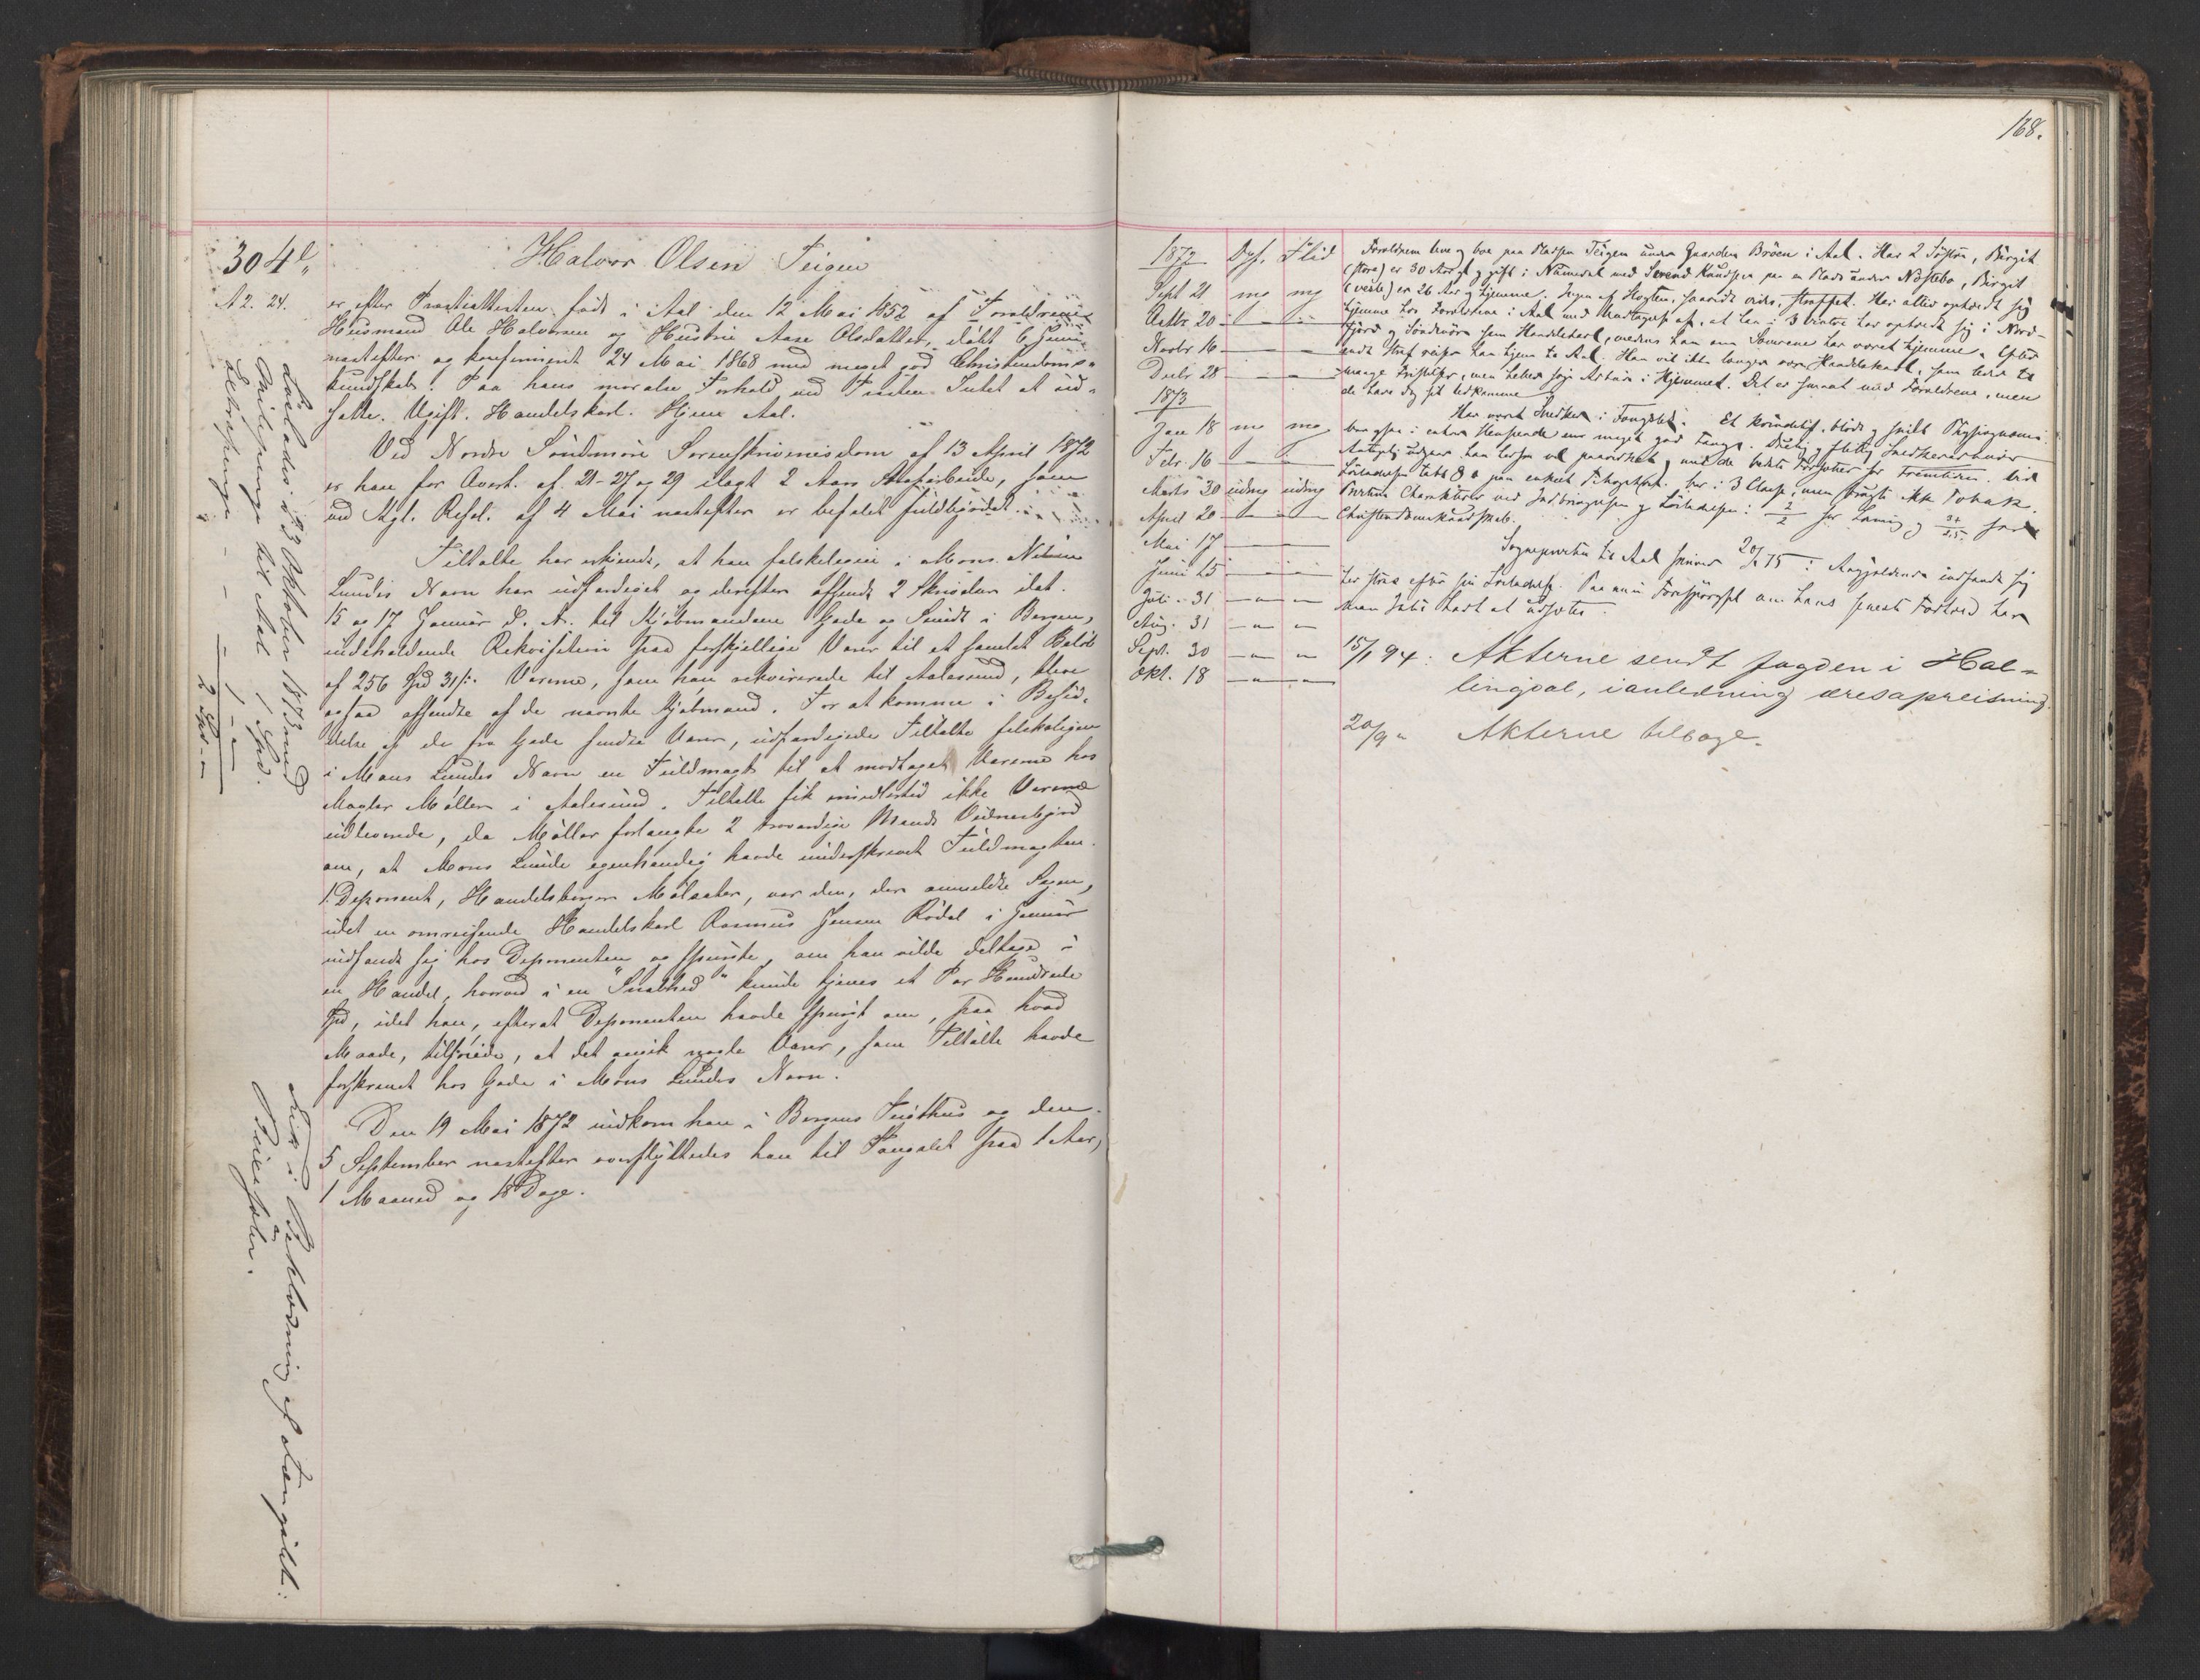 168.
304.
A 2. 24.
Halvor Olsen Teigen
er efter Præsteattesten født i Aal den 12 Mai 1852 af Forældrene
Husmand Ole Halvorsen og Hustru Aase Olsdatter, døbt 6 Juni
næstefter og konfirmeret 24 Mai 1868 med meget god Christendoms-
kundskab. Paa hans moralske Forhold ved Præsten Intet at ud-
sætte. Ugift. Handelskarl. Hjem Aal.
Ved Nordre Søndmøre Sorenskriverisdom af 13 April 1872
er han for Overt. af 21-27 og 29 ilagt 2 Aars Strafarbeide, som
ved Kgl. Resol. af 4 Mai næstefter er befalet fuldbyrdet.
Tiltalte har erkjendt, at han falskeligen i Mons Nilsen
Lundes Navn har udfærdiget og derefter afsendt 2 Skrivelser dat.
15 og 17 Januar d. A. til Kjøbmændene Gade og Smidt i Bergen,
indeholdende Rekvisition paa forskjellige Varer til et samlet Beløb
af 256 Spd 31 ß. Varerne, som han rekvirerede til Aalesund, blev
ogsaa afsendte af de nævnte Kjøbmænd. For at komme i Besid-
delse af de fra Gade sendte Varer, udfærdigede Tiltalte falskeligen
i Mons Lundes Navn en Fuldmagt til at modtage Varerne hos
Mægler Møller i Aalesund. Tiltalte fik imidlertid ikke Varerne
udleverede, da Møller forlangte 2 troværdige Mænds Vidnesbyrd
om, at Mons Lunde egenhændig havde underskrevet Fuldmagten.
1. Deponent, Handelsborger Molsæter, var den, der anmeldte Sagen,
idet en omreisende Handelskarl Rasmus Jensen Rødal i Januar
indfandt sig hos Deponenten og spurgte, om han vilde deltage i
en Handel, hvorved i en "Snarhed" kunde tjenes et Par Hundrede
Spd, idet han, efterat Deponenten havde spurgt om, paa hvad
Maade, tilføiede, at det angik nogle Varer, som Tiltalte havde
forskrevet hos Gade i Mons Lundes Navn.
Den 19 Mai 1872 indkom han i Bergens Tugthus og den
5 September næstefter overflyttedes han til Fængslet paa 1 Aar,
1 Maaned og 18 Dage.
Løslades i 23 Oktober 1873 med
Milepenge til Aal 1 Spd.
1 - " -
2 Spd - "
1872 Opf. Flid
Sept 21 mg mg
Oktbr 20 — —
Novbr 16 — —
Decbr 28 — —
1873
Jan 18 mg mg
Febr. 16 — —
Marts 30 udmg udmg
April 20 — —
Mai 17 — —
Juni 25 — —
Juli 31 — " — " —
Aug. 31 — " — " —
Sept. 30 — " — " —
Okt. 18 — " — " —
Forældrene leve og boe paa Pladsen Teigen under Gaarden Bråen i Aal. Har 2 Søstre, Birgit
(store) er 30 Aar gl. og gift i Numedal med Svend Knudsen paa en Plads under Nøstebø, Birgit
(vesle) er 26 Aar og hjemme. Ingen af Slægten, saavidt vides, straffet. Har altid opholdt sig
hjemme hos Forældrene i Aal med Undtagelse af, at han i 3 Vintre har opholdt sig i Nord-
fjord og Søndmøre som Handelskarl, medens han om Somrene har været hjemme. Efter
endt Straf reiser han hjem til Aal. Han vil ikke længer være Handelskarl, som leder til
mange Fristelser, men heller søge Arbeide i Hjemmet. Det er smaat med Forældrene, men
de have dog sit Udkomme.
Har været Snedker i Fængslet. Et kvindeligt, blødt og snildt Physiognomi.
Christendomskundskab.
Sognepresten til Aal skriver 20/2 75: Angjældende indfandt sig
her strax efter sin Løsladelse. Paa min Forespørgsel om hans senere Forhold har
man Intet havt at udsætte.
15/1 94: Akterne sendt fogden i Hal-
lingdal, i anledning æresopreisning.
20/9 " Akterne tilbage.